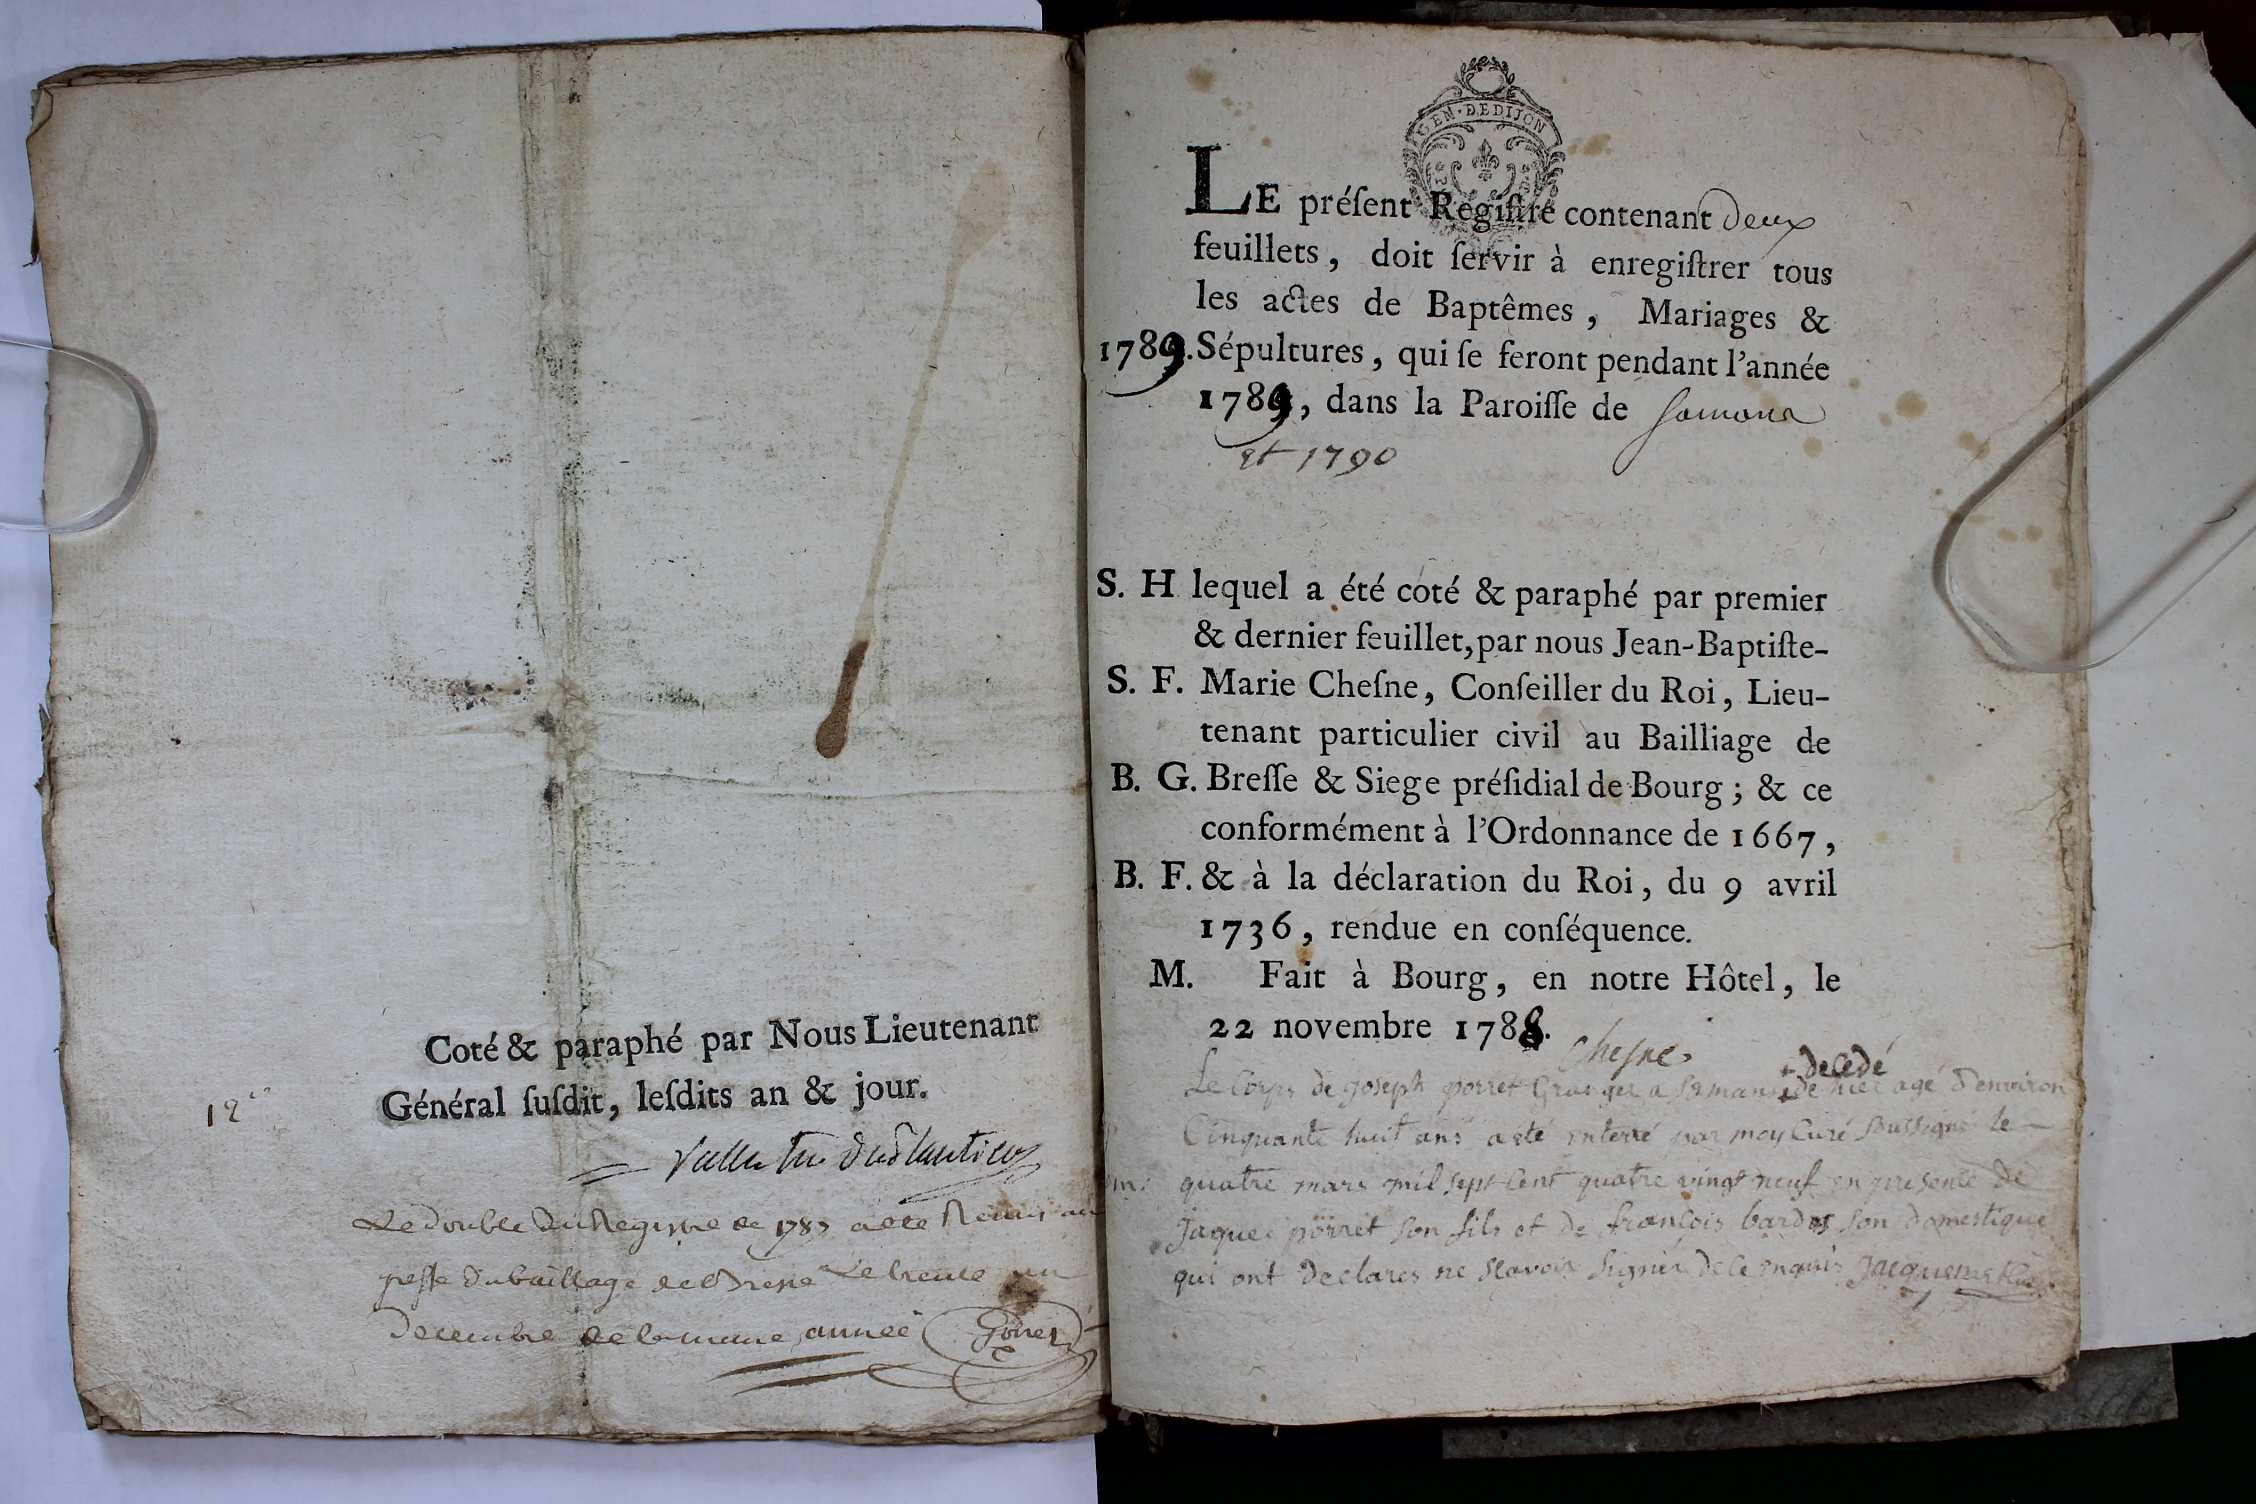 Coté & paraphé par Nous Lieutenant
Général ſuſdit, leſdits an & jour.
12
Le double du Registre de 1787 a été Remis au
greffe du bailliage de Bresse Le trente un
Decembre de la meme année
GEN·DE DIJON
LE préſent Regiſtre contenant deux
feuillets, doit ſervir à enregiſtrer tous
les actes de Baptêmes, Mariages &
1789. Sépultures, qui ſe feront pendant l'année
1789, dans la Paroiſſe de Samans
et 1790
S. H lequel a été coté & paraphé par premier
& dernier feuillet, par nous Jean-Baptiſte-
S. F. Marie Cheſne, Conſeiller du Roi, Lieu-
tenant particulier civil au Bailliage de
B. G. Breſſe & Siege préſidial de Bourg; & ce
conformément à l'Ordonnance de 1667,
B. F. & à la déclaration du Roi, du 9 avril
1736, rendue en conſéquence.
M. Fait à Bourg, en notre Hôtel, le
22 novembre 1788.
Chesne
+ decedé
Le Corps de joseph porret Granger a Samans + de hier agé d'environ
Cinquante huit ans a eté enterré par moy Curé Soussigné le
quatre mars mil sept cent quatre vingt neuf en presence de
jaque porret son fils et de françois bardet son domestique
qui ont declares ne scavoir signer de ce enquis